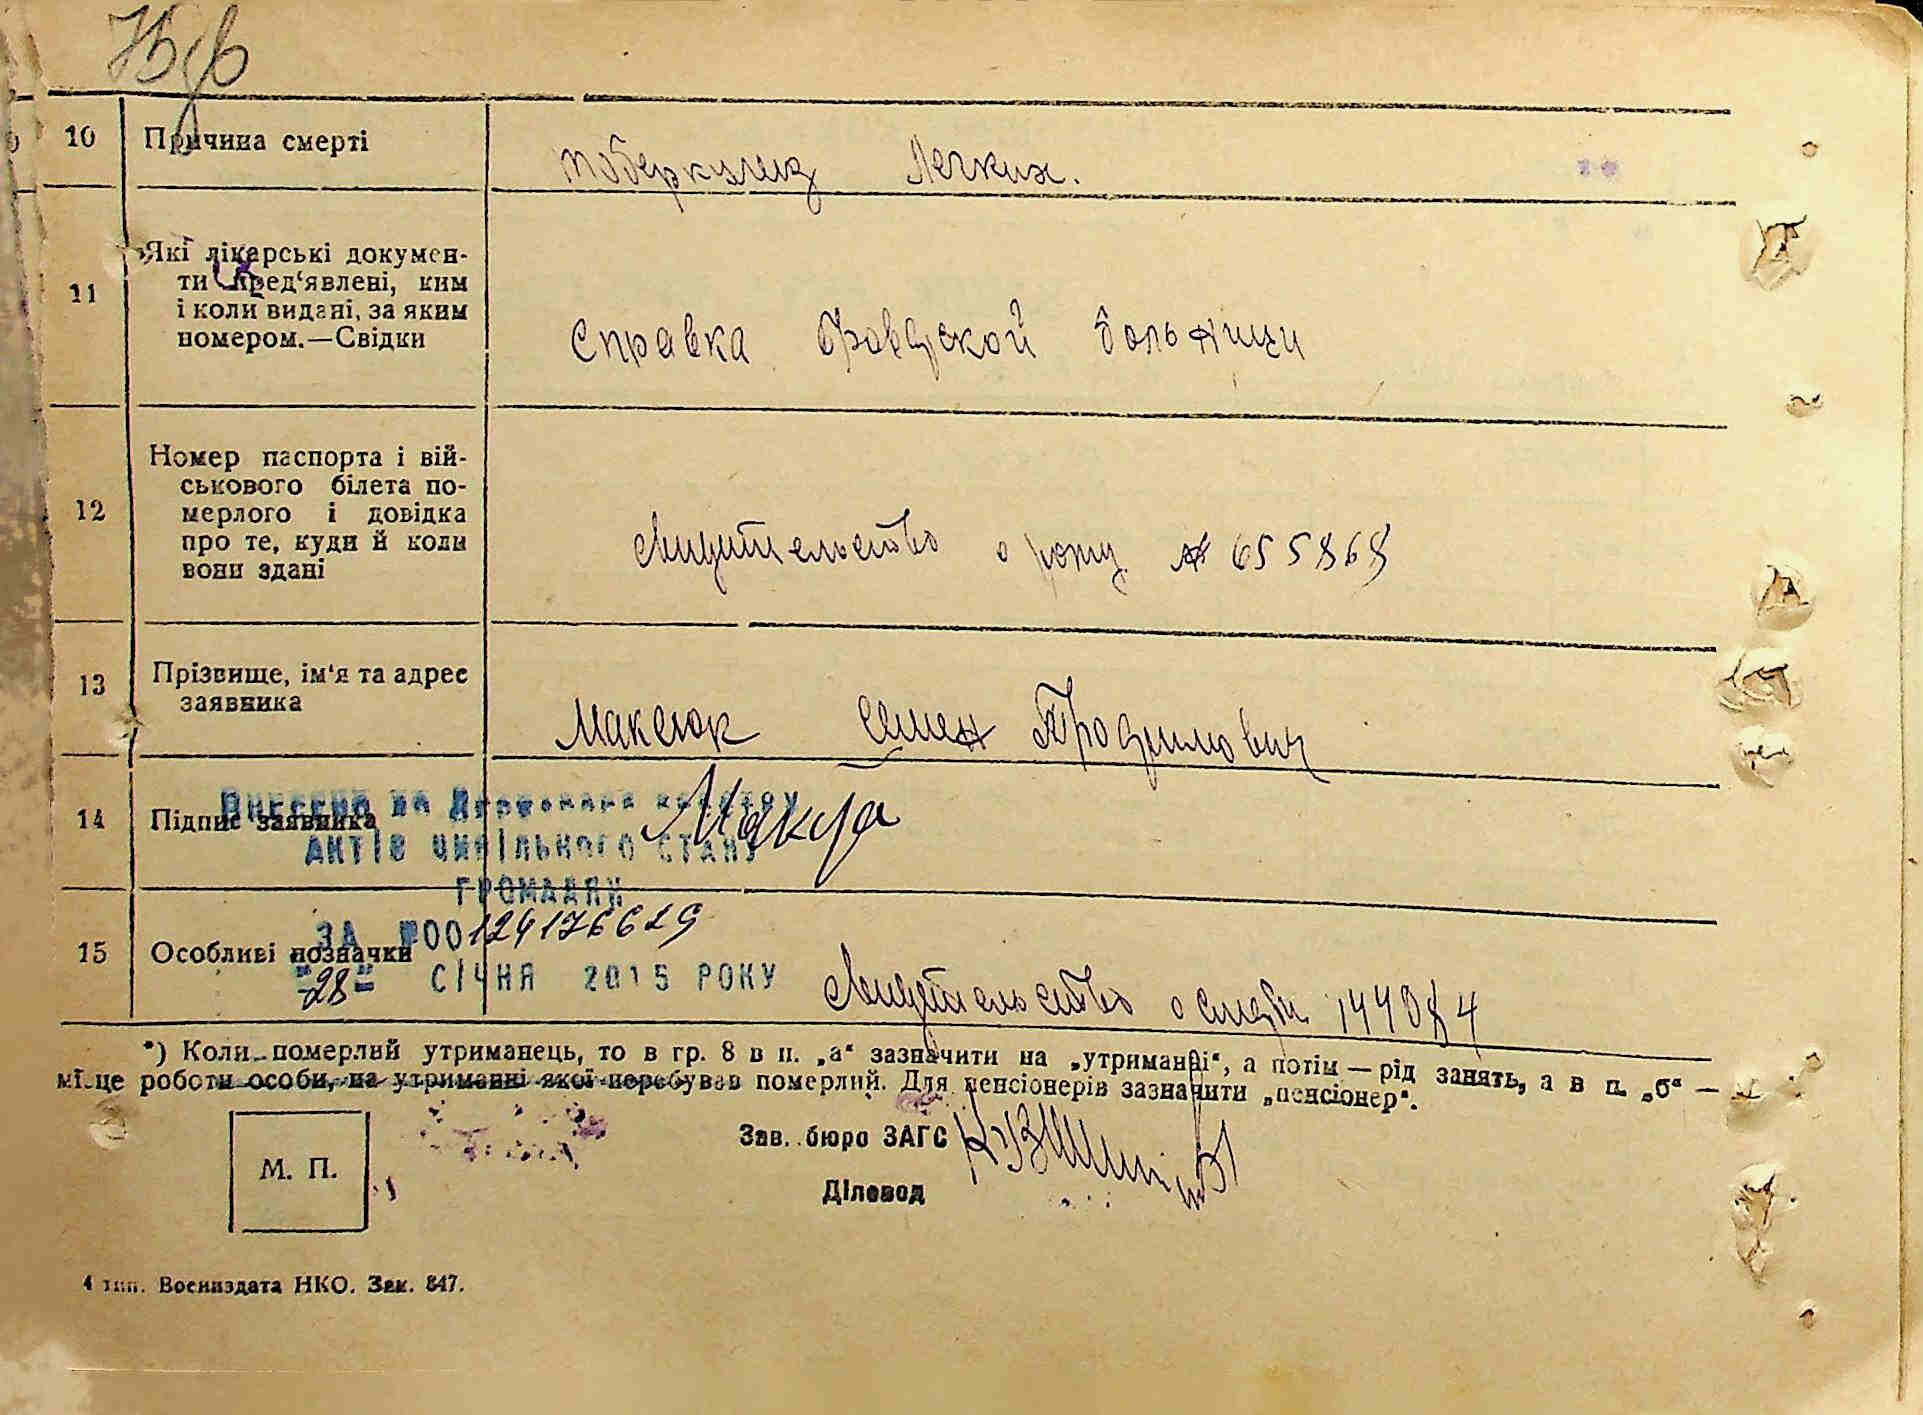 10 Причина смерті
туберкулиз Легких.
11 Які лікарські докумен-
ти пред‘явлені, ким
і коли видані, за яким
номером.—Свідки
Справка больници
12 Номер паспорта і вій-
ськового білета по-
мерлого і довідка
про те, куди й коли
вони здані
о 655868
13 Прізвище, ім‘я та адрес
заявника
Максюк Семен
14 Підпис заявника
Внесено до Державного реєстру
актів цивільного стану
громадян
за №00124176629
15 Особливі позначки
"28" січня 2015 року
о
*) Коли померлий утриманець, то в гр. 8 в п. „а“ зазначити на „утриманні“, а потім — рід занять, а в п. „б“ —
місце роботи особи, на утриманні якої перебував померлий. Для пенсіонерів зазначити „пенсіонер“.
М. П.
Зав. бюро ЗАГС
Діловод
4 тип. Воениздата НКО. Зак. 847.